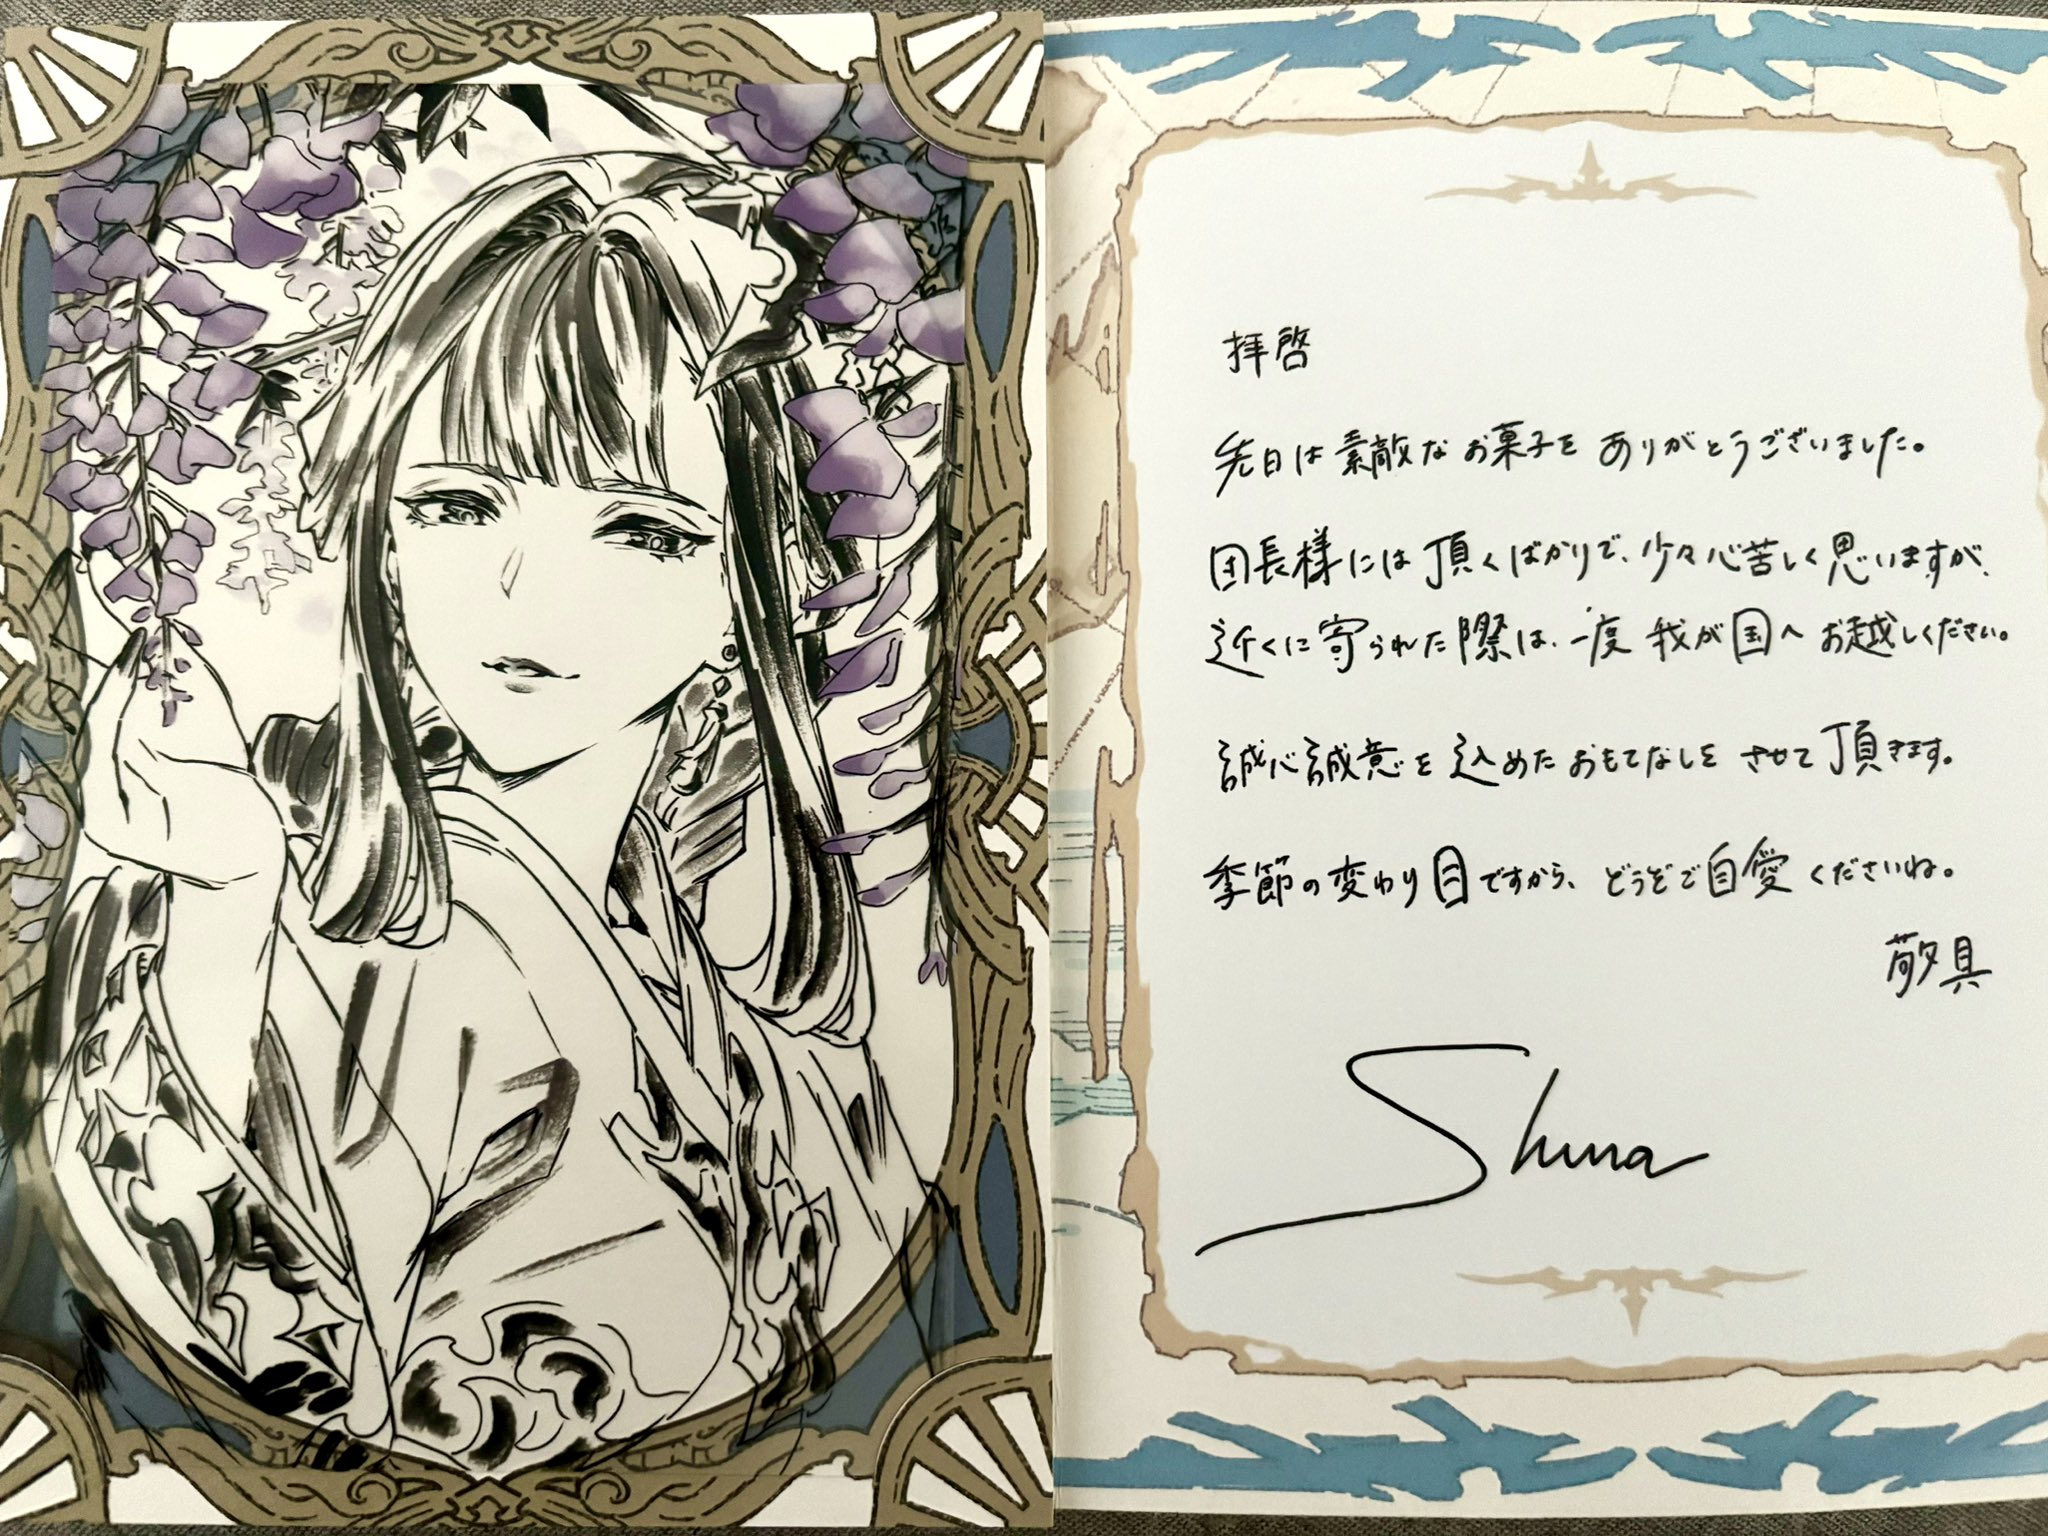 拝啓
先日は素敵なお菓子をありがとうございました。
団長様には頂くばかりで、少々心苦しく思いますが、
近くに寄られた際は、一度我が国へお越しください。
誠心誠意を込めたおもてなしをさせて頂きます。
季節の変わり目ですから、どうぞご自愛くださいね。
敬具
Shuna